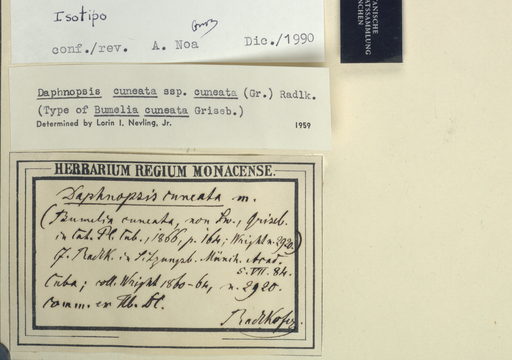 Isotipo
conf./rev. A. Noa Dic./1990
TANISCHE
TSSAMMLUNG
NCHEN
Daphnopsis cuneata ssp. cuneata (Gr.) Radlk.
(Type of Bumelia cuneata Griseb.)
Determined by Lorin I. Nevling, Jr. 1959
HERBARIUM REGIUM MONACENSE.
Daphnopsis cuneata m.
(Bumelia cuneata, non Sw., Griseb.
in Cat. Pl. Cub., 1866, p. 164; Wright n. 2920)
Cf. Radlk. in Sitzungsb. Münch. Acad.
5. VII. 84.
Cuba; coll. Wright 1860-64, n. 2920.
comm. ex Hb. DC.
Radlkofer.